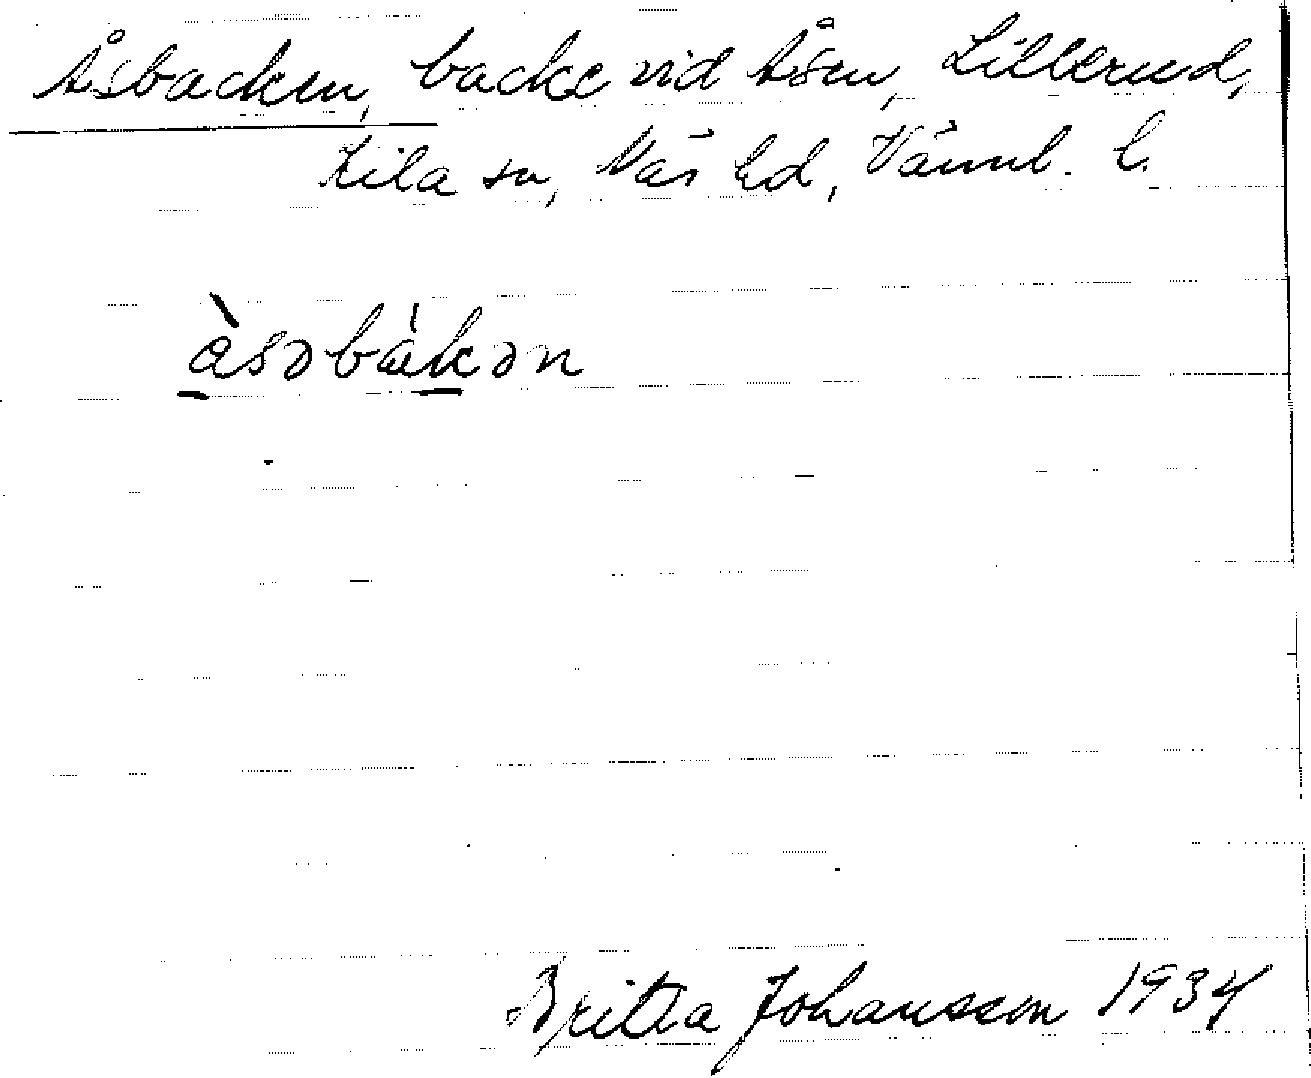 Åsbacken, backe vid Åsen, Lillerud,
Kila sn, Näs hd, Värml. l.
åsəbàkən
Britta Johansson 1934